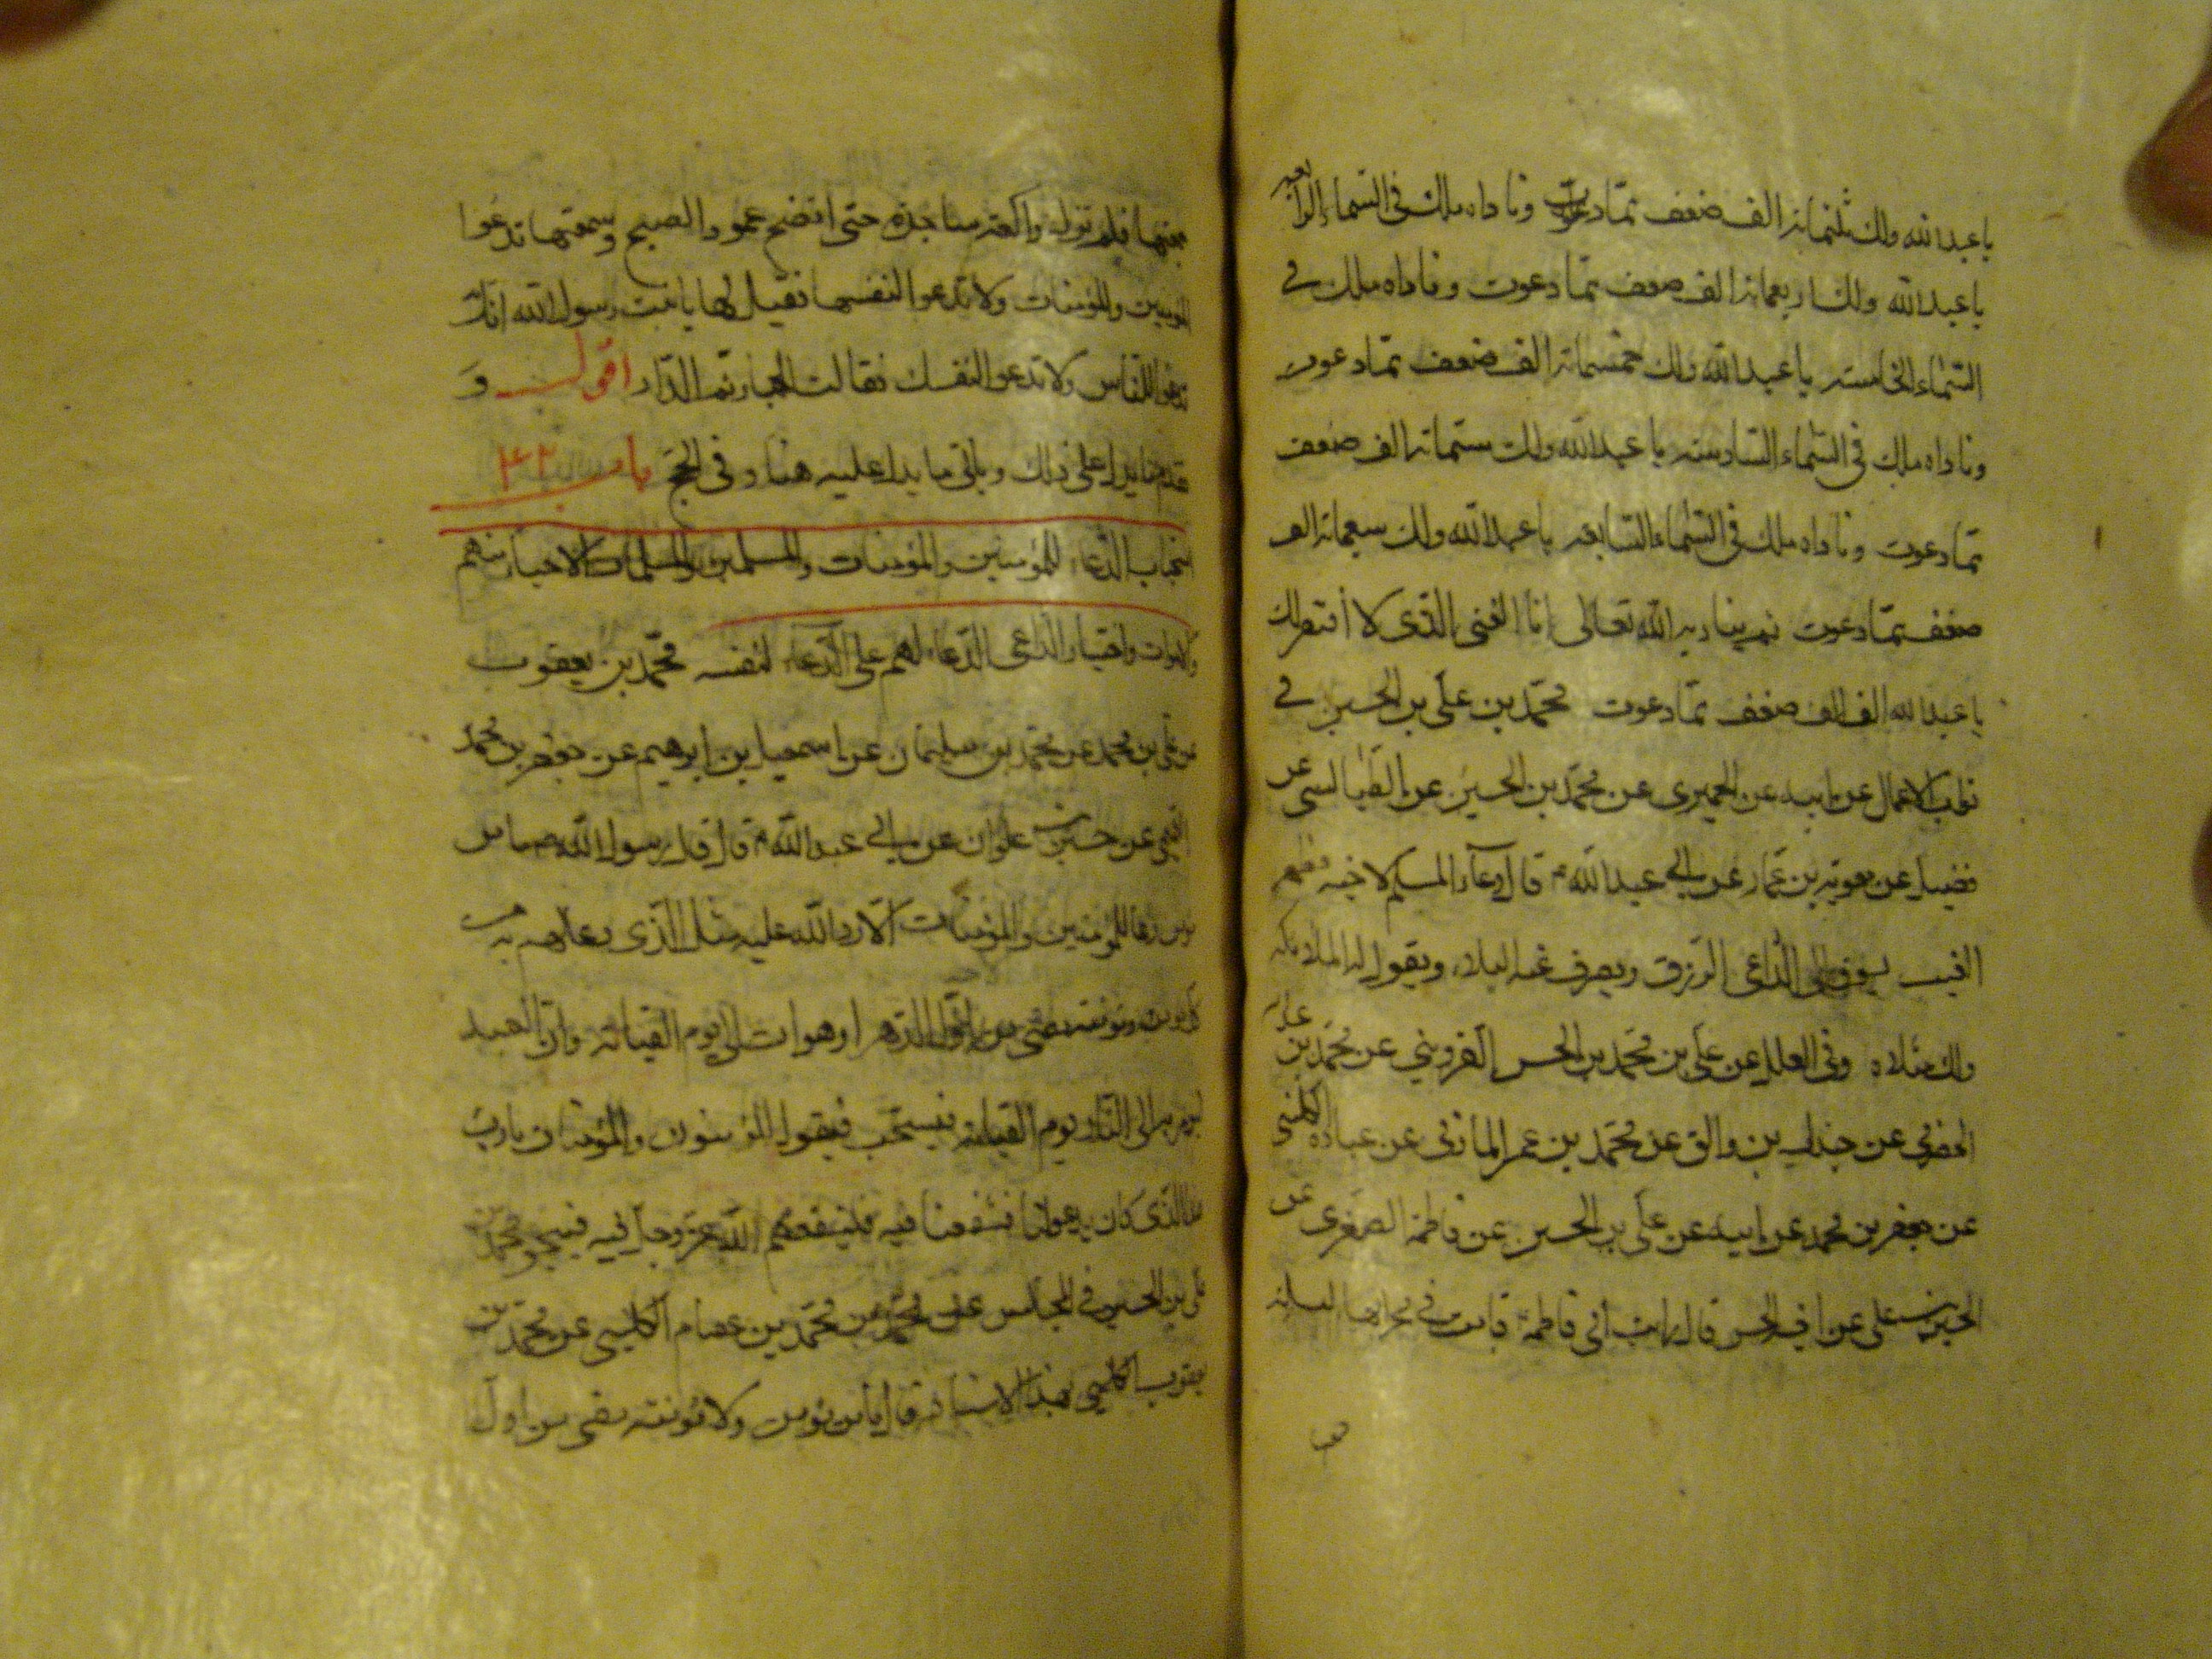 يا عبد الله ولك ثلثمائة الف ضعف مما دعوت وناداه ملك فى السماء الرابعة
يا عبد الله ولك اربعمائة الف ضعف مما دعوت وناداه ملك فى
السماء الخامسة يا عبد الله ولك خمسمائة الف ضعف مما دعوت
وناداه ملك فى السماء السادسة يا عبد الله ولك ستمائة الف ضعف
مما دعوت وناداه ملك فى السماء السابعة يا عبد الله ولك سبعمائة الف
ضعف مما دعوت ثم يناديه الله تعالى انا الغنى الذى لا أفتقر لك
يا عبد الله الف الف ضعف مما دعوت محمد بن على بن الحسين فى
ثواب الاعمال عن ابيه عن الحميرى عن محمد بن الحسين عن الطيالسى عن
فضيل عن معوية بن عمار عن ابى عبد الله ع قال دعآء المسلم لاخيه بظهر
الغيب يسوق الى الداعى الرزق ويصرف عنه البلاء ويقول له الملائكة
ولك مثلاه وفى العلل عن على بن محمد بن الحسن القزوينى عن محمد بن عبد الله
الحضرمى عن جندل بن والق عن محمد بن عمر المازنى عن عباده الكلبى
عن جعفر بن محمد عن ابيه عن على بن الحسين عن فاطمة الصغرى عن
الحسين بن على عن اخيه الحسن قال رايت امى فاطمة ع قامت فى محرابها ليلة
جمعتها فلم تزل راكعة ساجدة حتى اتضح عمود الصبح وسمعتها تدعوا
للمؤمنين والمؤمنات ولا تدعوا لنفسها فقيل لها يا بنت رسول الله انك
تدعوا للناس ولا تدعو لنفسك فقالت الجار ثم الدار اقول و
تقدم ما يدل على ذلك وياتى ما يدل عليه هنا وفى الحج باب ٤٢
استحباب الدعاء للمؤمنين والمؤمنات والمسلمين والمسلمات الاحياء منهم
والاموات واختيار الداعى الدعاء لهم على الدعاء لنفسه محمد بن يعقوب
عن على بن محمد عن محمد بن سليمان عن اسمعيل بن ابرهيم عن جعفر بن محمد
التميمى عن حسين بن علوان عن ابى عبد الله ع قال قال رسول الله ص ما من
مؤمن دعا للمؤمنين والمؤمنات الا رد الله عليه مثل الذى دعا لهم به من
كل مؤمن ومؤمنة مضى من اول الدهر او هو ات الى يوم القيامة وان العبد
ليؤمر به الى النار يوم القيامة فيسحب فيقول المؤمنون والمؤمنات يا رب
هذا الذى كان يدعو لنا فشفعنا فيه فيشفعهم الله عز وجل فيه فينجو محمد بن
على بن الحسين فى المجالس عن محمد بن محمد بن عصام الكلينى عن محمد بن
يعقوب الكلينى بهذا الاسناد قال ما من مؤمن ولا مؤمنة مضى من اول